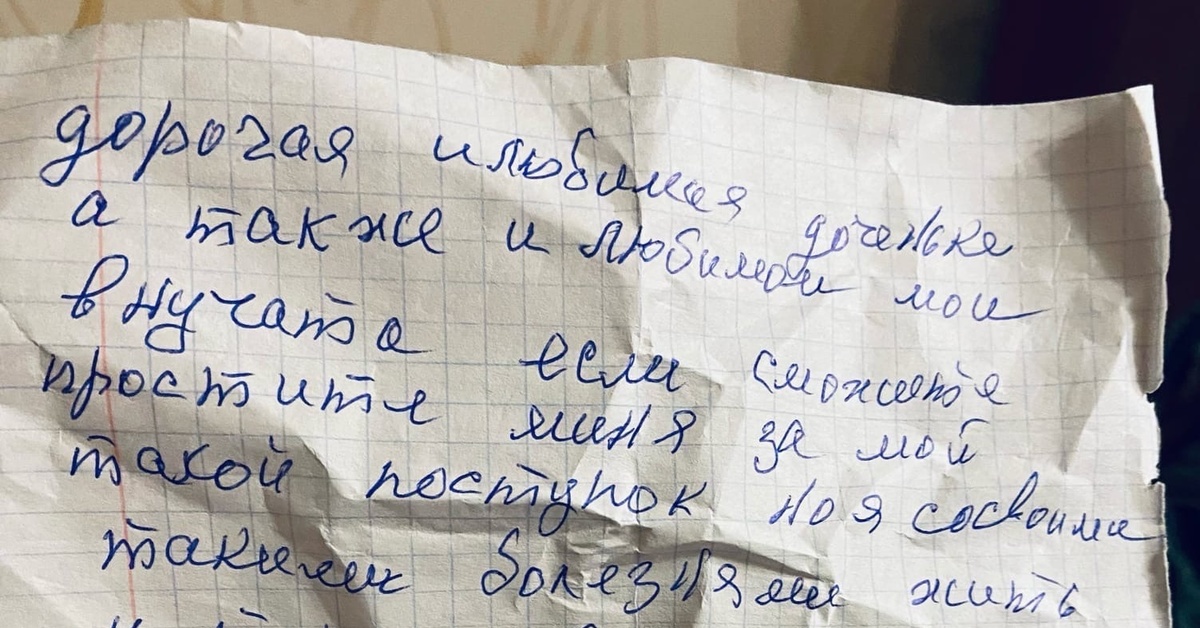 дорогая илюбимая доченька
а также и любимои мои
внучата если сможите
простите миня за мой
такой поступок но я сосвоими
такими болезнями жить